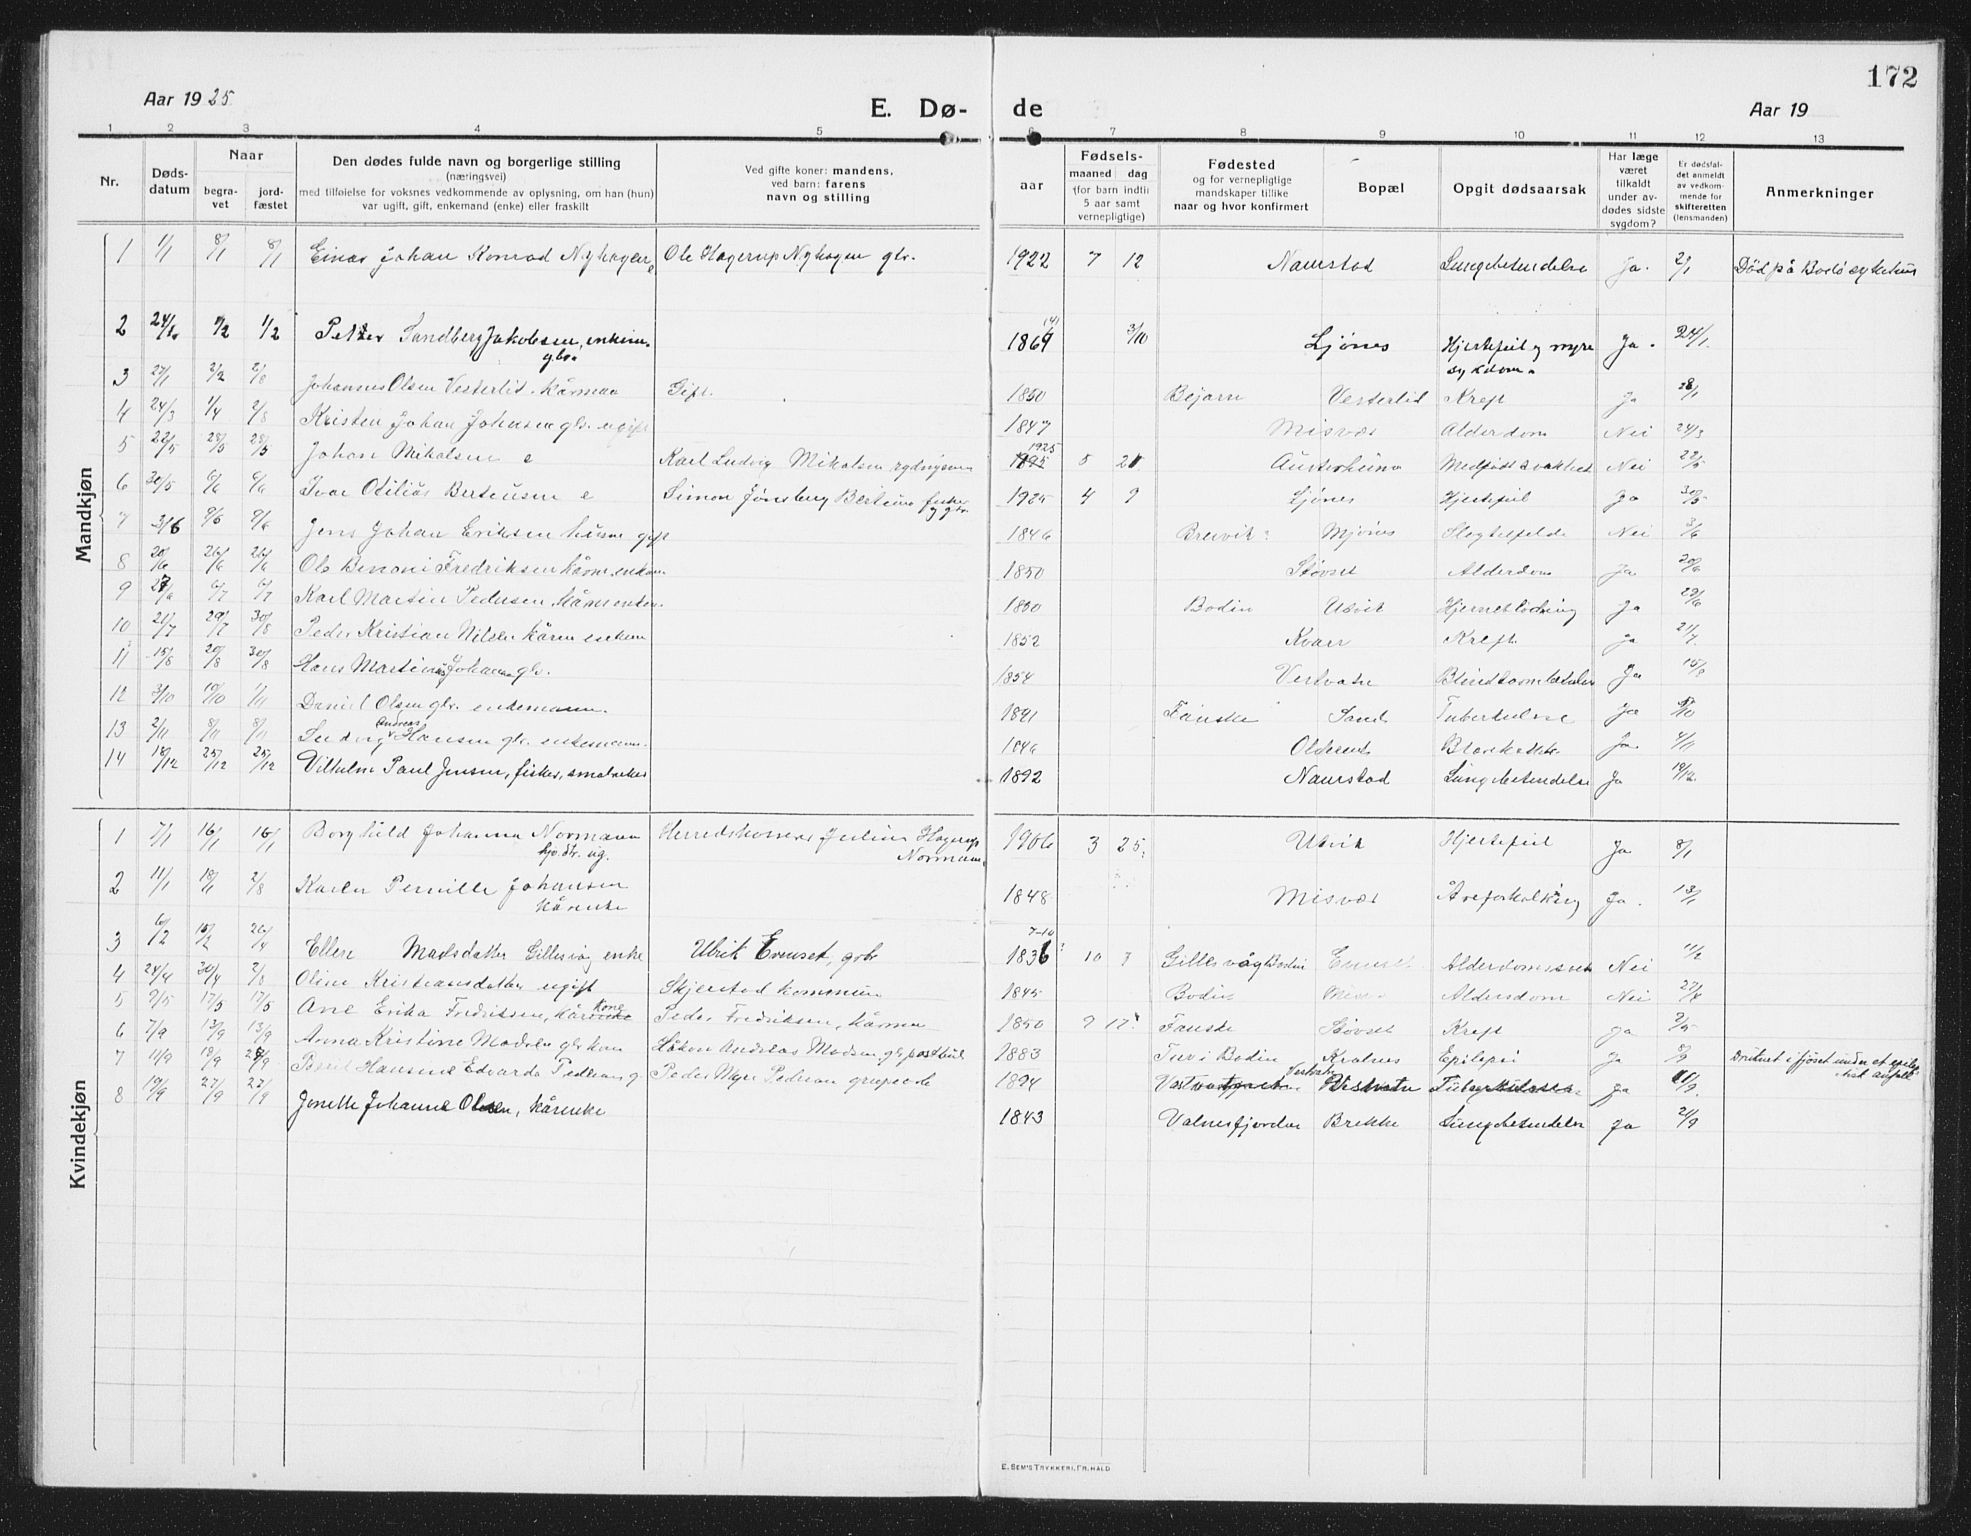 172
Aar 1925
E. Dø-
de
Aar 19
1 2 3 4 5 6 7 8 9 10 11 12 13
Nr.
Døds-
datum
Naar
begra-
vet
jord-
fæstet
Den dødes fulde navn og borgerlige stilling
(næringsvei)
med tilføielse for voksnes vedkommende av oplysning, om han (hun)
var ugift, gift, enkemand (enke) eller fraskilt
Ved gifte koner: mandens,
ved barn: farens
navn og stilling
aar
Fødsels-
maaned dag
(for barn indtil
5 aar samt
vernepligtige)
Fødested
og for vernepligtige
mandskaper tillike
naar og hvor konfirmert
Bopæl
Opgit dødsaarsak
Har læge
været
tilkaldt
under av-
dødes sidste
sygdom?
Er dødsfal-
det anmeldt
av vedkom-
mende for
skifteretten
(lensmanden)
Anmerkninger
Mandkjøn
1 1/1 8/1 8/1 Einar Johan Konrad Nyhagen Ole Hagerup Nyhagen gbr. 1922 7 12 Naurstad Lungebetendelse Ja. 2/1 Død på Bodø sykehus
2 1/2 1/2 Petter Sandberg Jakobsen, enkem. gbr. 3/10 Ljønes Hjertefeil og nyre sykdom. Ja. 24/1
3 27/1 2/2 2/8 Johannes Olsen Vesterlid. Kårman Gift. 1850 Bejarn Vesterlid Kreft Ja 28/1
4 24/3 1/4 2/8 Kristen Johan Johnsen gbr. ugift 1847 Misvær Alderdom Nei 24/3
5 22/5 28/5 28/5 Johan Mikalsen e Karl Ludvig Mikalsen 1925 5 Medfødt svakhet Nei 22/5
6 30/5 6/6 6/6 Ivar Otilius Berteusen e Simon Jønsberg Berteusen fisker og gbr. 1925 4 9 Ljønes Hjertefeil Ja 30/5
7 3/6 9/6 9/6 Jens Johan Eriksen husm gift 1846 Breivik? Mjønes Nei 3/6
8 20/6 26/6 26/6 Ole Benoni Fredriksen Kårm. enkem. 1850 Støvset Alderdom Ja 20/6
9 6/7 6/7 Karl Martin Pedersen, Kårm enkem. 1850 Bodin Ulvik Hjerneblødning Ja 29/6
10 21/7 29/7 30/8 Peder Kristian Nilsen Kårm enkem 1852 Kvarv Kreft Ja 21/7
11 15/8 20/8 30/8 Hans Martinus Johansen gbr. 1854 Vestvatn Blindtarmbetendelse Ja 15/8
12 3/10 10/10 1/11 Daniel Olsen gbr. enkemann. 1841 Fauske Sand Tuberkulose Ja
13 2/11 8/11 8/11 Ludvig Andreas Hansen gbr. enkemann. 1846 Oldereid Blærekatarr Ja 4/11
14 18/12 25/12 25/12 Vilhelm Paul Jensen, fisker, 1892 Naurstad Lungebetendelse Ja 19/12
Kvindekjøn
1 7/1 16/1 16/1 Borghild Johanna Normann Herredskasserer Julius Hagerup Normann 1906 3 25 Ulvik Hjertefeil Ja 8/1
2 11/1 18/1 2/8 Karen Pernille Johansen kårenke 1848 Misvær Åreforkalking Ja. 13/1
3 6/2 15/2 26/4 Ellen Madsdatter Gillesvåg enke Ulrik Evenset, gbr 7-10 1836 10 7 Gillesvåg Bodin Evenset Nei 11/2
4 24/4 30/4 2/8 Oline Kristiansdatter ugift Skjerstad kommune 1845 Bodin Aldersdom Nei 27/4
5 9/5 17/5 17/5 Ane Erika Fredriksen, kone Peder Fredriksen, kårman 1850 9 17 Fauske Støvset Kreft Ja 9/5
6 7/9 13/9 13/9 Anna Kristine Madsen gbr. kone Håkon Andreas Madsen, gbr. 1883 Tuv i Bodin Kvalnes Epilepsi Ja 8/9 Druknet i fjøset under et epileptisk anfall
7 11/9 18/9 Berit Hansine Edvarda Pedersen g. Peder Myre Pedersen 1894 Vestvatn Tuberkulose Ja 11/9
8 19/9 27/9 27/9 Jonette Johanne Olsen, kårenke 1843 Valnesfjorden Brekke Lungebetendelse Ja 21/9
E. SEM'S TRYKKERI, FR.HALD